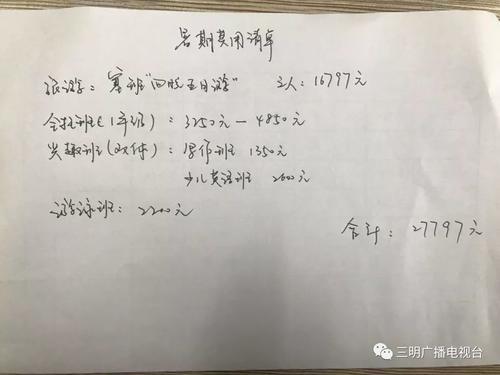 暑期费用清单
旅游：寒班"四晚五日游" 三人：16797元
全托班（1年级）：3250元—4850元
兴趣班（双休）：写作班 1350元
少儿英语班 2600元
游泳班：2200元
合计：27797元
三明广播电视台